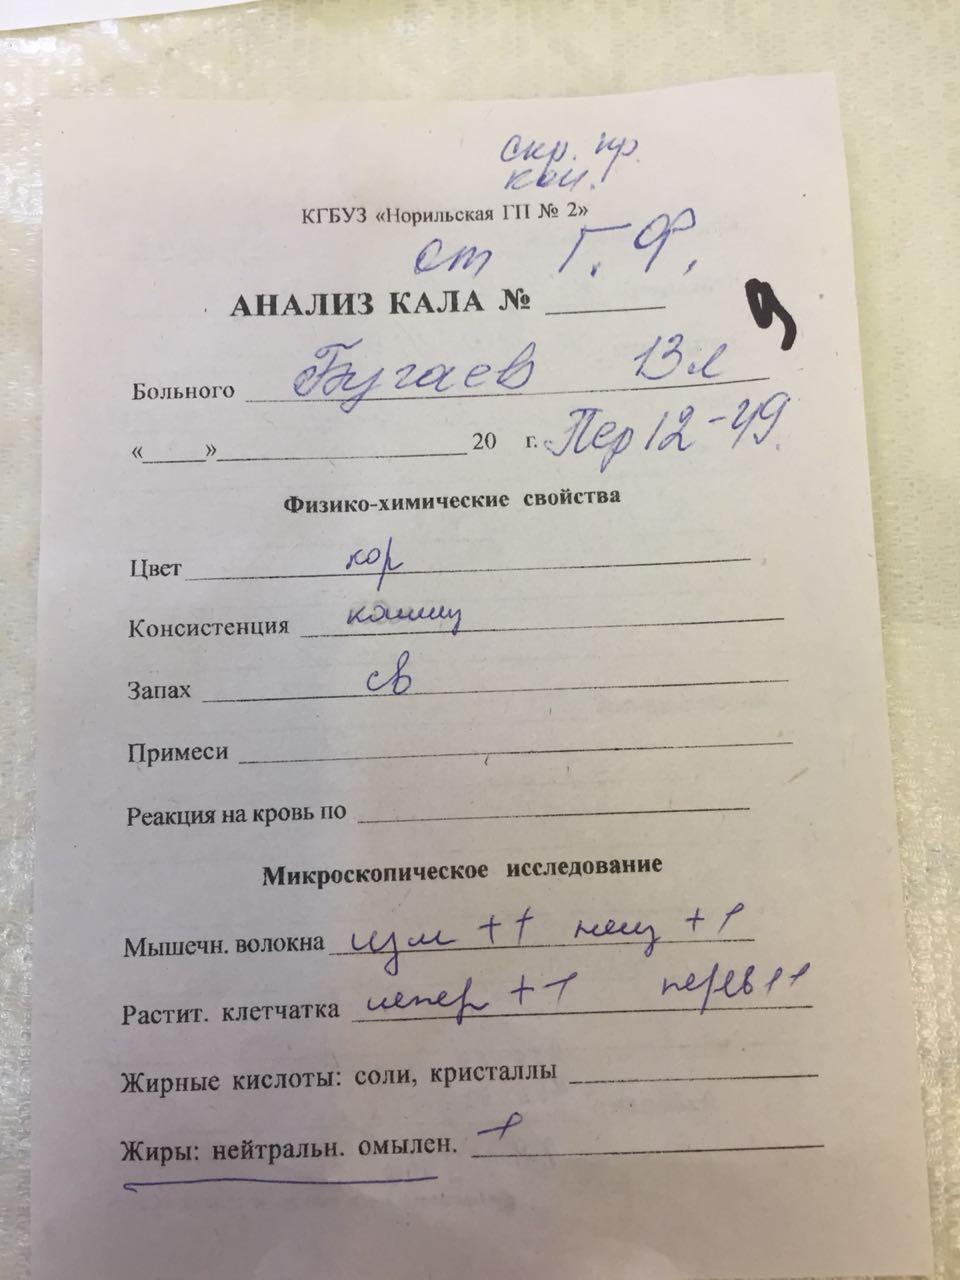 скр. пр.
кон.
КГБУЗ «Норильская ГП № 2»
от Г. Ф.
АНАЛИЗ КАЛА №
9
Больного Бугаев 13 л
« » 20 г. Пер 12-49.
Физико-химические свойства
Цвет кор
Консистенция кашиц
Запах св
Примеси
Реакция на кровь по
Микроскопическое исследование
Мышечн. волокна изм ++ неиз ++
Растит. клетчатка непер ++ перев ++
Жирные кислоты: соли, кристаллы
Жиры: нейтральн. омылен. +